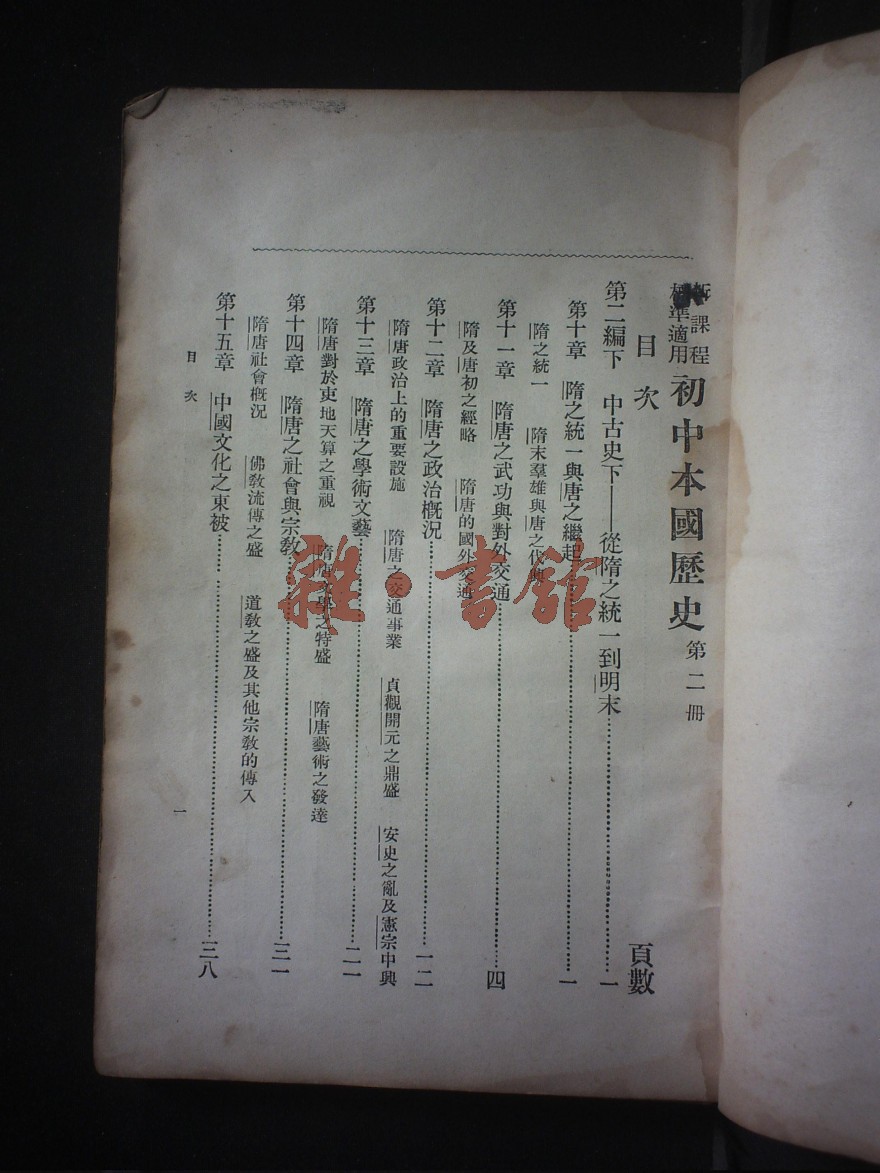 新課程
標準適用
初中本國歷史 第二冊
目次
頁數
第二編下 中古史下——從隋之統一到明末……一
第十章 隋之統一與唐之繼起……一
隋之統一 隋末羣雄與唐之代興
第十一章 隋唐之武功與對外交通……四
隋及唐初之經略 隋唐的國外交通
第十二章 隋唐之政治概況……一二
隋唐政治上的重要設施 隋唐之交通事業 貞觀開元之鼎盛 安史之亂及憲宗中興
第十三章 隋唐之學術文藝……二一
隋唐對於史地天算之重視 隋唐文學之特盛 隋唐藝術之發達
第十四章 隋唐之社會與宗教……三一
隋唐社會概況 佛教流傳之盛 道教之盛及其他宗教的傳入
第十五章 中國文化之東被……三八
目次
一
雜·書館